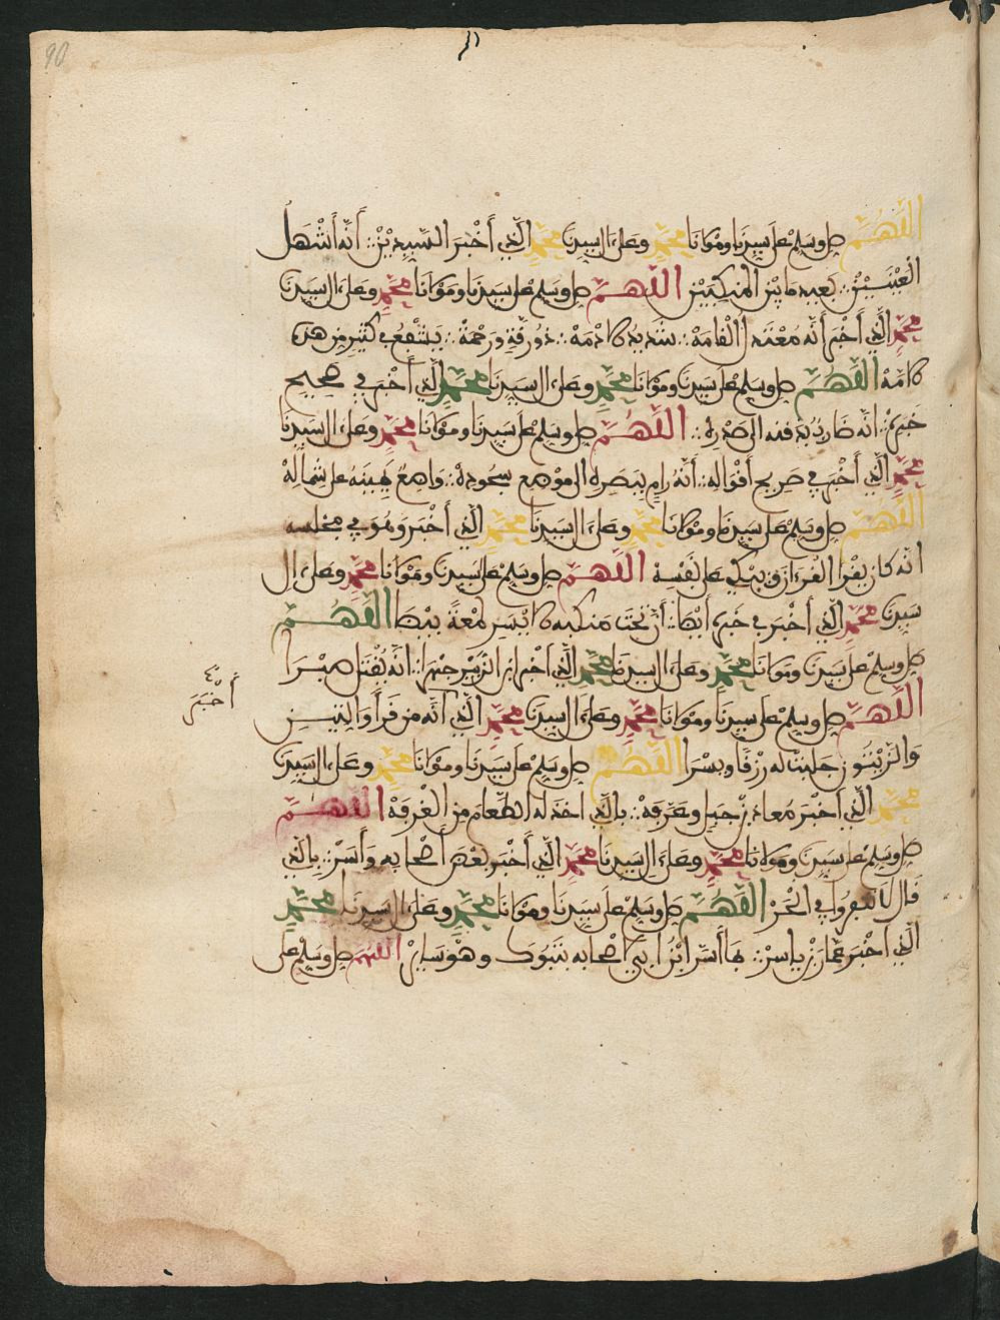 90
اللَّهُمَّ صل وسلم على سيدنا ومولانا محمد وعلى ءال سيدنا محمد الذي أخبر السيدين أنه أشهل
العينين بعيد ما بين المنكبين اللهم صل وسلم على سيدنا ومولانا محمد وعلى ءال سيدنا
محمد الذي أخبر أنه معتدل القامة شديد الادمة ذو رقة ورحمة يشفع في كثير من هذه
الامة اللهم صل وسلم على سيدنا ومولانا محمد وعلى ءال سيدنا محمد الذي أخبر في صحيح
خبره انه ضارب بذقنه الى صدره اللهم صل وسلم على سيدنا ومولانا محمد وعلى ءال سيدنا
محمد الذي أخبر في صريح أقواله أنه رام ببصره الى موضع سجوده واضع يمينه على شماله
اللهم صل وسلم على سيدنا ومولانا محمد وعلى ءال سيدنا محمد الذي أخبر وهو في مجلسه
انه كان يقرا القرءان ويبكي على نفسه اللهم صل وسلم على سيدنا ومولانا محمد وعلى ءال
سيدنا محمد الذي أخبر في خبره أيضا أن تحت منكبه الايسر لمعة بيضا اللهم
صل وسلم على سيدنا ومولانا محمد وعلى ءال سيدنا محمد الذي أخبر ابن الزبير جهرا انه يقتل صبرا
أخبر
اللهم صل وسلم على سيدنا ومولانا محمد وعلى ءال سيدنا محمد الذي أنه من قرأ والتين
والزيتون جلبتا له رزقا ويسرا اللهم صل وسلم على سيدنا ومولانا محمد وعلى ءال سيدنا
محمد الذي أخبر معاذ بن جبل وعرفه بالذي اخذ له الطعام من الغرفة اللهم
صل وسلم على سيدنا ومولانا محمد وعلى ءال سيدنا محمد الذي أخبر بعض أصحابه وأسر بالذي
قال لا تنفروا في الحر اللهم صل وسلم على سيدنا ومولانا محمد وعلى ءال سيدنا محمد
الذي أخبر عمار بن ياسر بما أسر ابن ابي لاصحابه بتبوك وهو ساير اللهم صل وسلم على